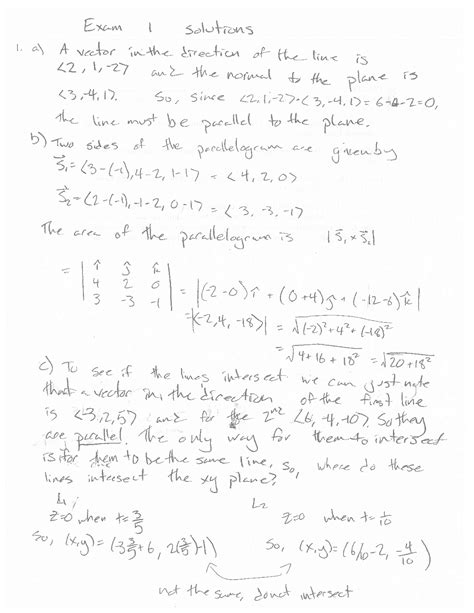 Exam 1 solutions
1. a) A vector in the direction of the line is
<2, 1, -2> and the normal to the plane is
<3, -4, 1>. So, since <2, 1, -2>·<3, -4, 1> = 6-4-2=0,
the line must be parallel to the plane.
b) Two sides of the parallelogram are given by
S⃗₁ = <3-(-1), 4-2, 1-1> = <4, 2, 0>
S⃗₂ = <2-(-1), -1-2, 0-1> = <3, -3, -1>
The area of the parallelogram is |S⃗₁ × S⃗₂|
= | î ĵ k̂ |
| 4 2 0 |
| 3 -3 -1 | = |(-2-0)î + (0+4)ĵ + (-12-6)k̂|
= |<-2, 4, -18>| = √((-2)²+4²+(-18)²)
= √(4+16+18²) = √(20+18²)
c) To see if the lines intersect we can just note
that a vector in the direction of the first line
is <-3, 2, 5> and for the 2nd <6, -4, -10>. So they
are parallel. The only way for them to intersect
is for them to be the same line, so, where do these
lines intersect the xy plane?
L₁ L₂
z=0 when t=3/5 z=0 when t=1/10
So, (x,y)=(-3 3/5+6, 2(3/5)-1) So, (x,y)=(6/10-2, -4/10)
not the same, do not intersect